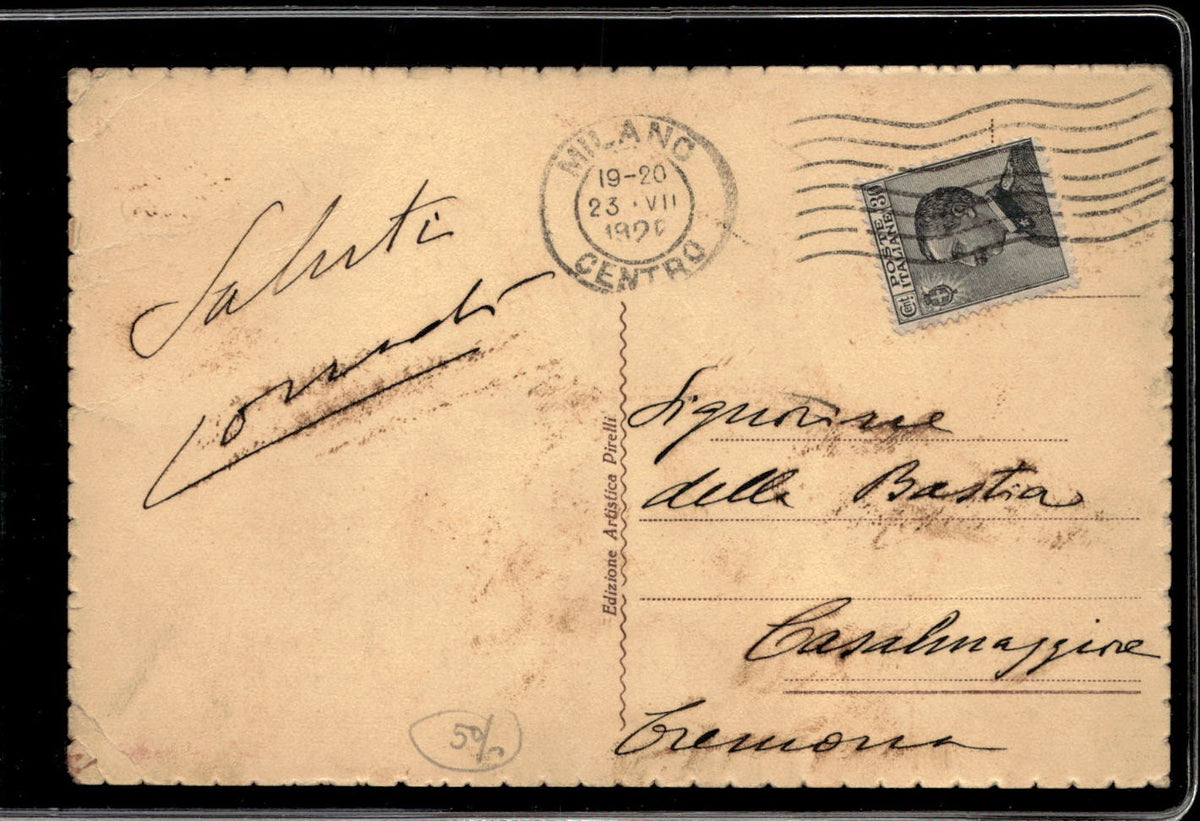 Saluti
MILANO
19-20
23·VII
CENTRO
POSTE
ITALIANE
Cent. 30
Edizione Artistica Pirelli
Signorine
della Bastia
Casalmaggiore
Cremona